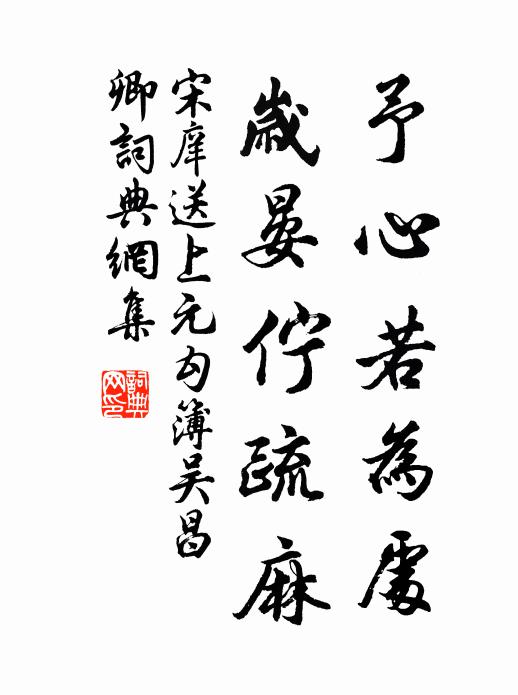 予心若為處
歲晏佇疏麻
宋庠送上元勾簿吳昌
卿詞典網集
詞典
网印